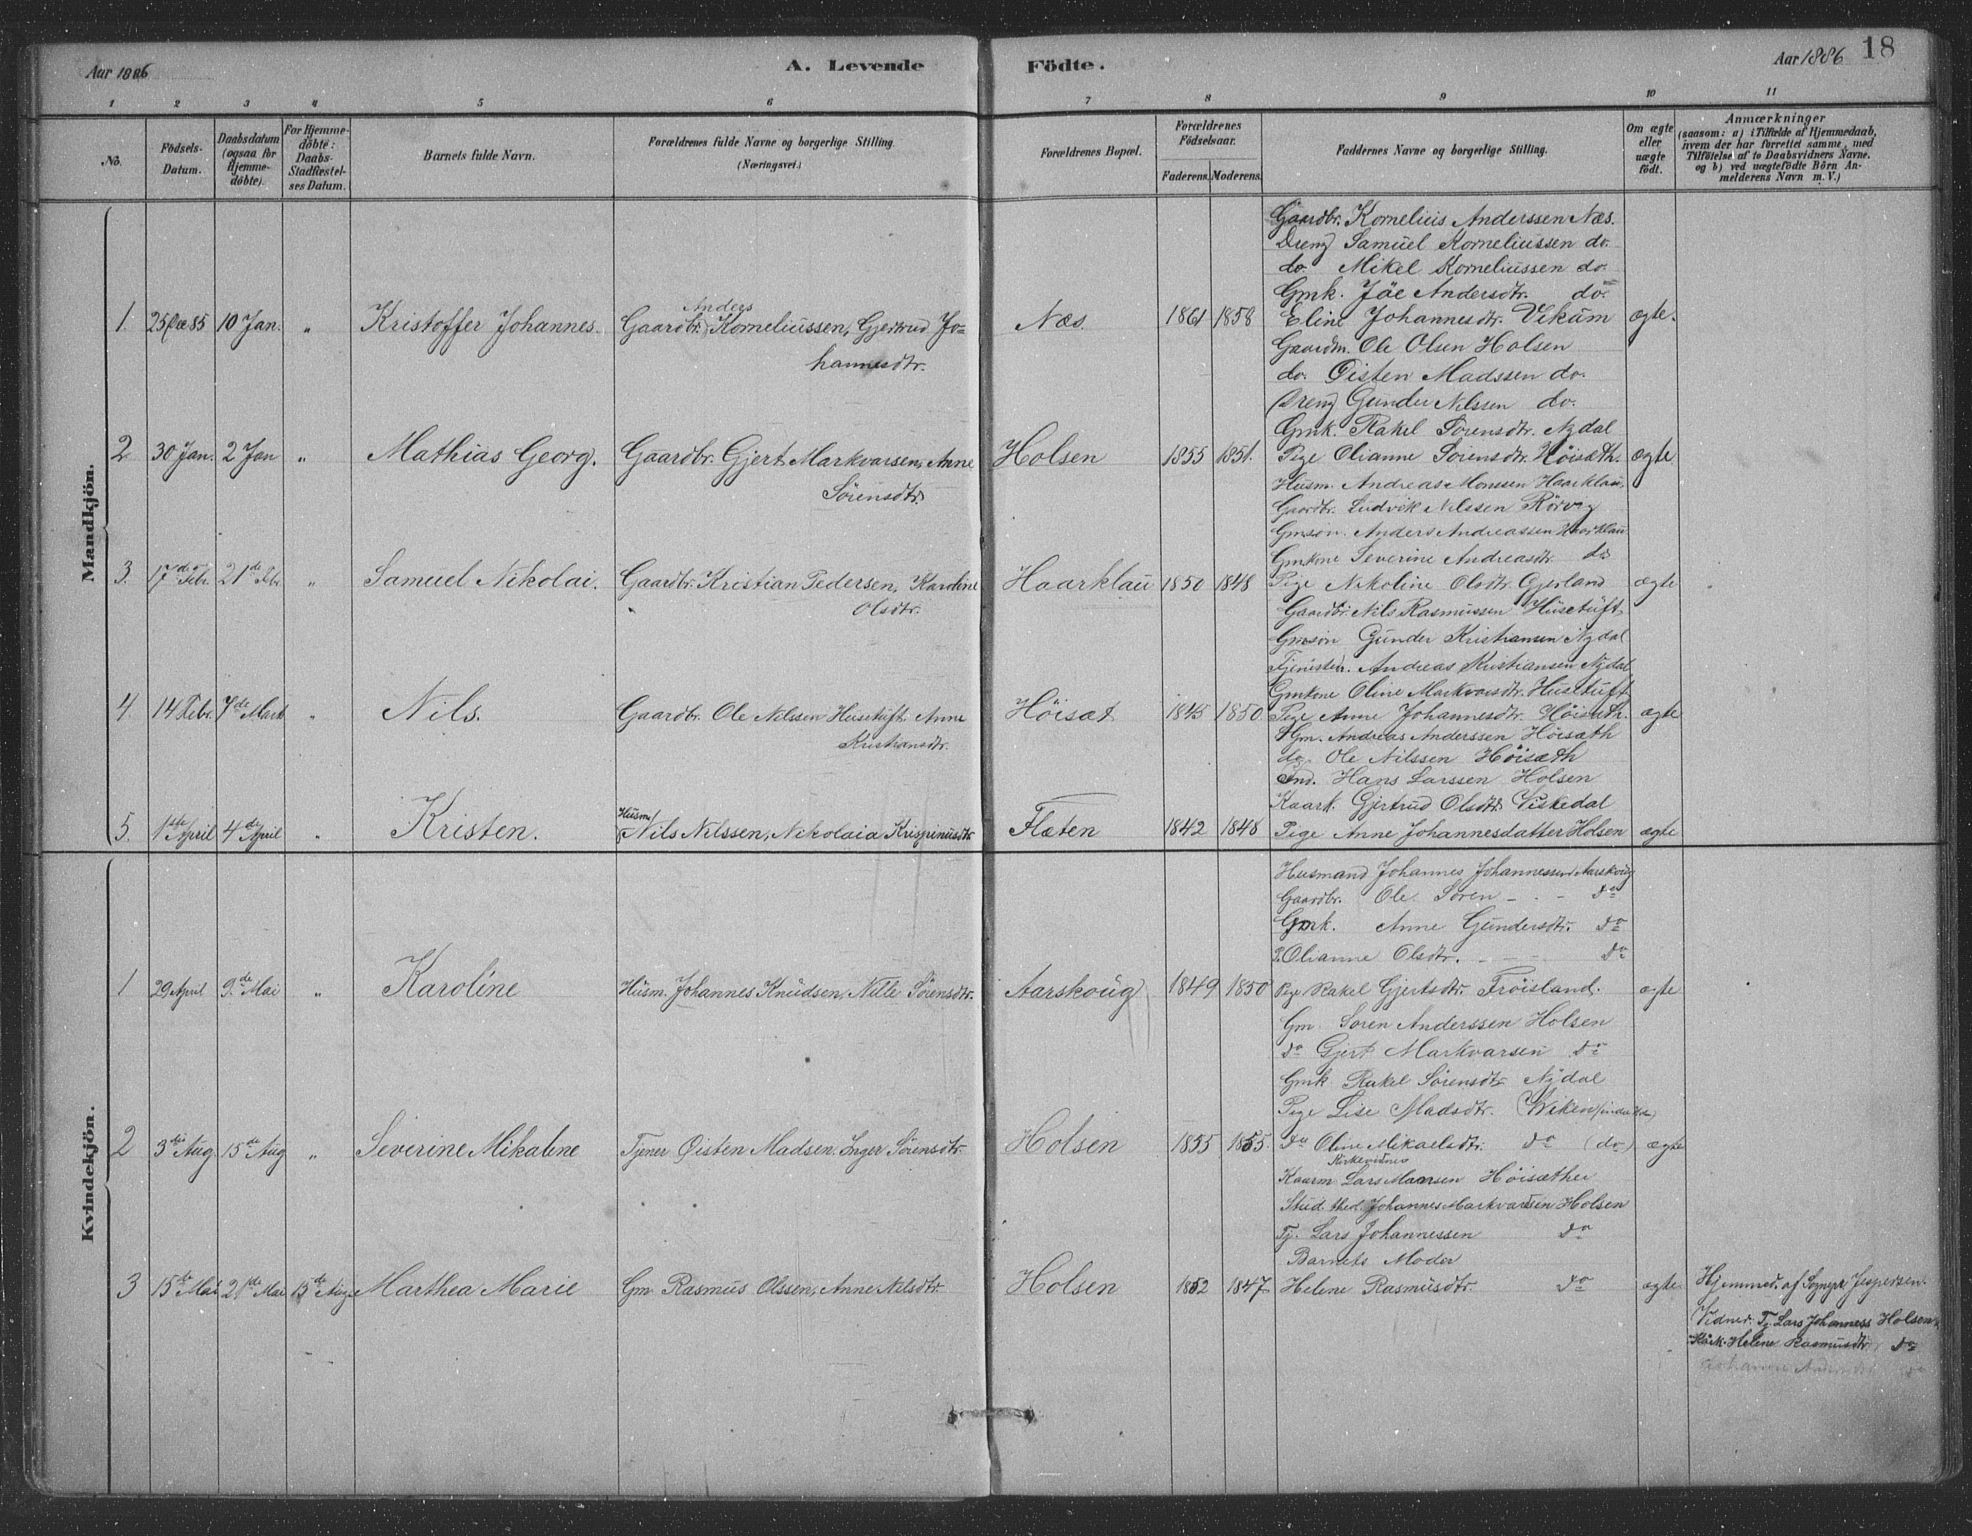 Aar 1886
A. Levende
Födte.
Aar 1886
18
1 2 3 4 5 6 7 8 9 10 11
No.
Födsels-
Datum.
Daabsdatum
(ogsaa for
Hjemme-
döbte).
For Hjemme-
döbte:
Daabs-
Stadfæstel-
ses Datum.
Barnets fulde Navn.
Forældrenes fulde Navne og borgerlige Stilling.
(Næringsvei.)
Forældrenes Bopæl.
Forældrenes
Födselsaar.
Faderens. Moderens.
Faddernes Navne og borgerlige Stilling.
Om ægte
eller
uægte
födt.
Anmærkninger
(saasom: a) i Tilfælde af Hjemmedaab,
hvem der har forrettet samme, med
Tilföielse af to Daabsvidners Navne,
og b) ved uægtefödte Börn An-
melderens Navn m. V.)
Mandkjön.
Gaardbr. Kornelius Anderssen Næs.
Dreng Samuel Korneliussen do.
do. Mikel Korneliussen do.
Gmk. Jöe Andersdtr. do.
Anders
1. 25 Dec 85 10 Jan. " Kristoffer Johannes. Gaardbr. Korneliussen, Gjertrud Jo- Næs 1861 1858 Eline Johannesdtr. Vikum ægte.
hannesdtr.
Gaardm. Ole Olsen Holsen
do. Öisten Madssen do.
Dreng Gunder Nilssen do.
Gmk. Rakel Sörensdtr. Nydal
2 30 Jan. 2 Jan " Mathias Georg. Gaardbr. Gjert Markvarsen, Anne Holsen 1855 1851. Pige Olianne Sörensdtr. Höisæth. ægte
Sörensdtr
Husm. Andreas Monssen Haarklau.
Gaardbr. Ludvik Nilssen Rörvig
Gmsön. Anders Andreassen Haarklau
Gmkone Severine Andreasdtr. do
3. 17de Febr. 21de Fbr " Samuel Nikolai. Gaardbr. Kristian Pedersen, Karoline Haarklau 1850 1848 Pige Nikoline Olsdtr. Gjerland ægte
Olsdtr.
Gaardbr. Nils Rasmussen Husetuft
Gmsön Gunder Kristiansen Nydal
Tjenesten. Andreas Kristiansen Nydal
Gmkone Oline Markvarsdtr. Husetuft
4. 14 Febr. 7de Mart " Nils. Gaardbr. Ole Nilssen Husetuft Anne Höisæt 1845 1850. Pige Anne Johannesdtr. Höisæth. ægte
Kristiansdtr.
Gm. Andreas Anderssen Höisæth
do Ole Nilssen Höisæth
Ind. Hans Larssen Holsen
Kaark. Gjertrud Olsdtr. Viskedal
Husm.
5. 1ste April 4de April " Kristen. Nils Nilssen, Nikolaia Krispinusdtr Flæten 1842 1848 Pige Anne Johannesdatter Holsen ægte
Kvindekjön.
Husmand Johannes Johannessen Aarskoug
Gaardbr. Ole Sören - - - do
Gmk. Anne Gundersdtr. do
P. Olianne Olsdtr. - - - do
1 29 April 9de Mai " Karoline Husm. Johannes Knudsen, Nille Sörensdtr. Aarskoug 1849 1850 Pige Rakel Gjertsdtr. Fröisland. ægte
Gm. Sören Anderssen Holsen
do Gjert Markvarsen do
Gmk. Rakel Sörensdtr Nydal
Pige Lise Madsdtr. Wiken
2 3die Aug 15de Aug " Severine Mikaline Tjener Öisten Madsen. Inger Sörensdtr. Holsen 1855 1855. do Oline Mikaelsdtr. do (do) ægte
Kirkevidner
Kaarm. Lars Monsen Höisæther
Stud. theol. Johannes Markvarsen Holsen
Tj. Lars Johannessen do
Barnets Moder
3 15de Mai 21de Mai 15de Aug Marthea Marie Gm. Rasmus Olssen, Anne Nilsdtr. Holsen 1852 1847 Helene Rasmusdtr. do ægte Hjemmed. af Sognepr. Jespersen.
Vidner. Tj. Lars Johanness Holsen
Helene Rasmusdtr do